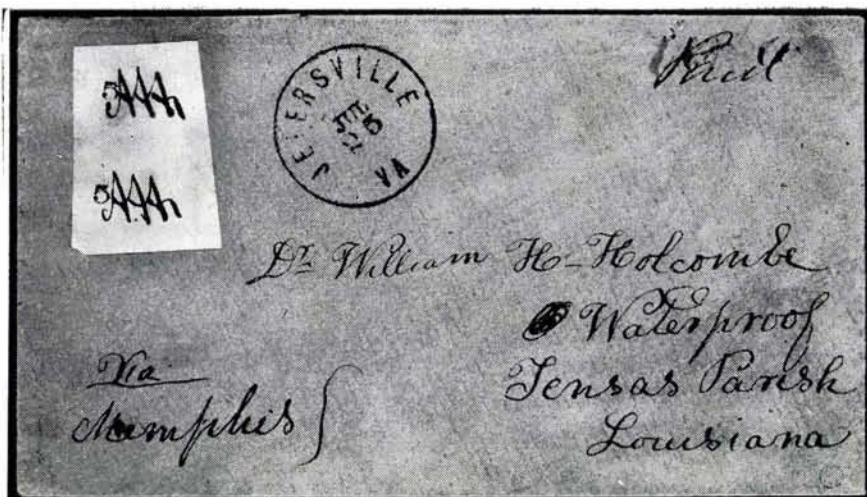 JETERSVILLE
VA
Paid
5
5
Dr William H- Holcombe
Waterproof
Tensas Parish
Louisiana
Via
Memphis